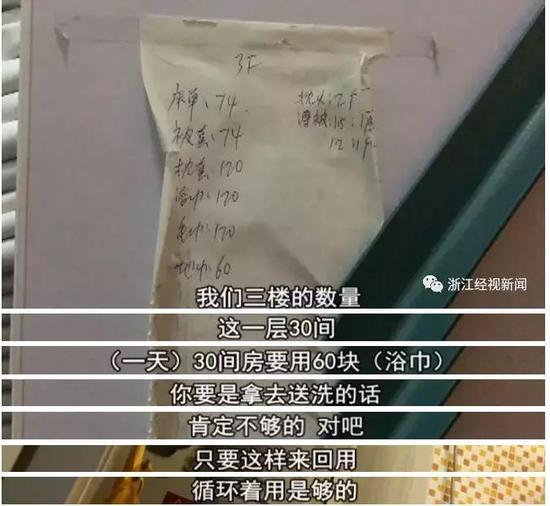 3F
床单:74
被套:74
枕套:120
浴巾:120
毛巾:120
地巾:60
枕头:2个
薄被:15
浙江经视新闻
我们三楼的数量
这一层30间
（一天）30间房要用60块（浴巾）
你要是拿去送洗的话
肯定不够的 对吧
只要这样来回用
循环着用是够的